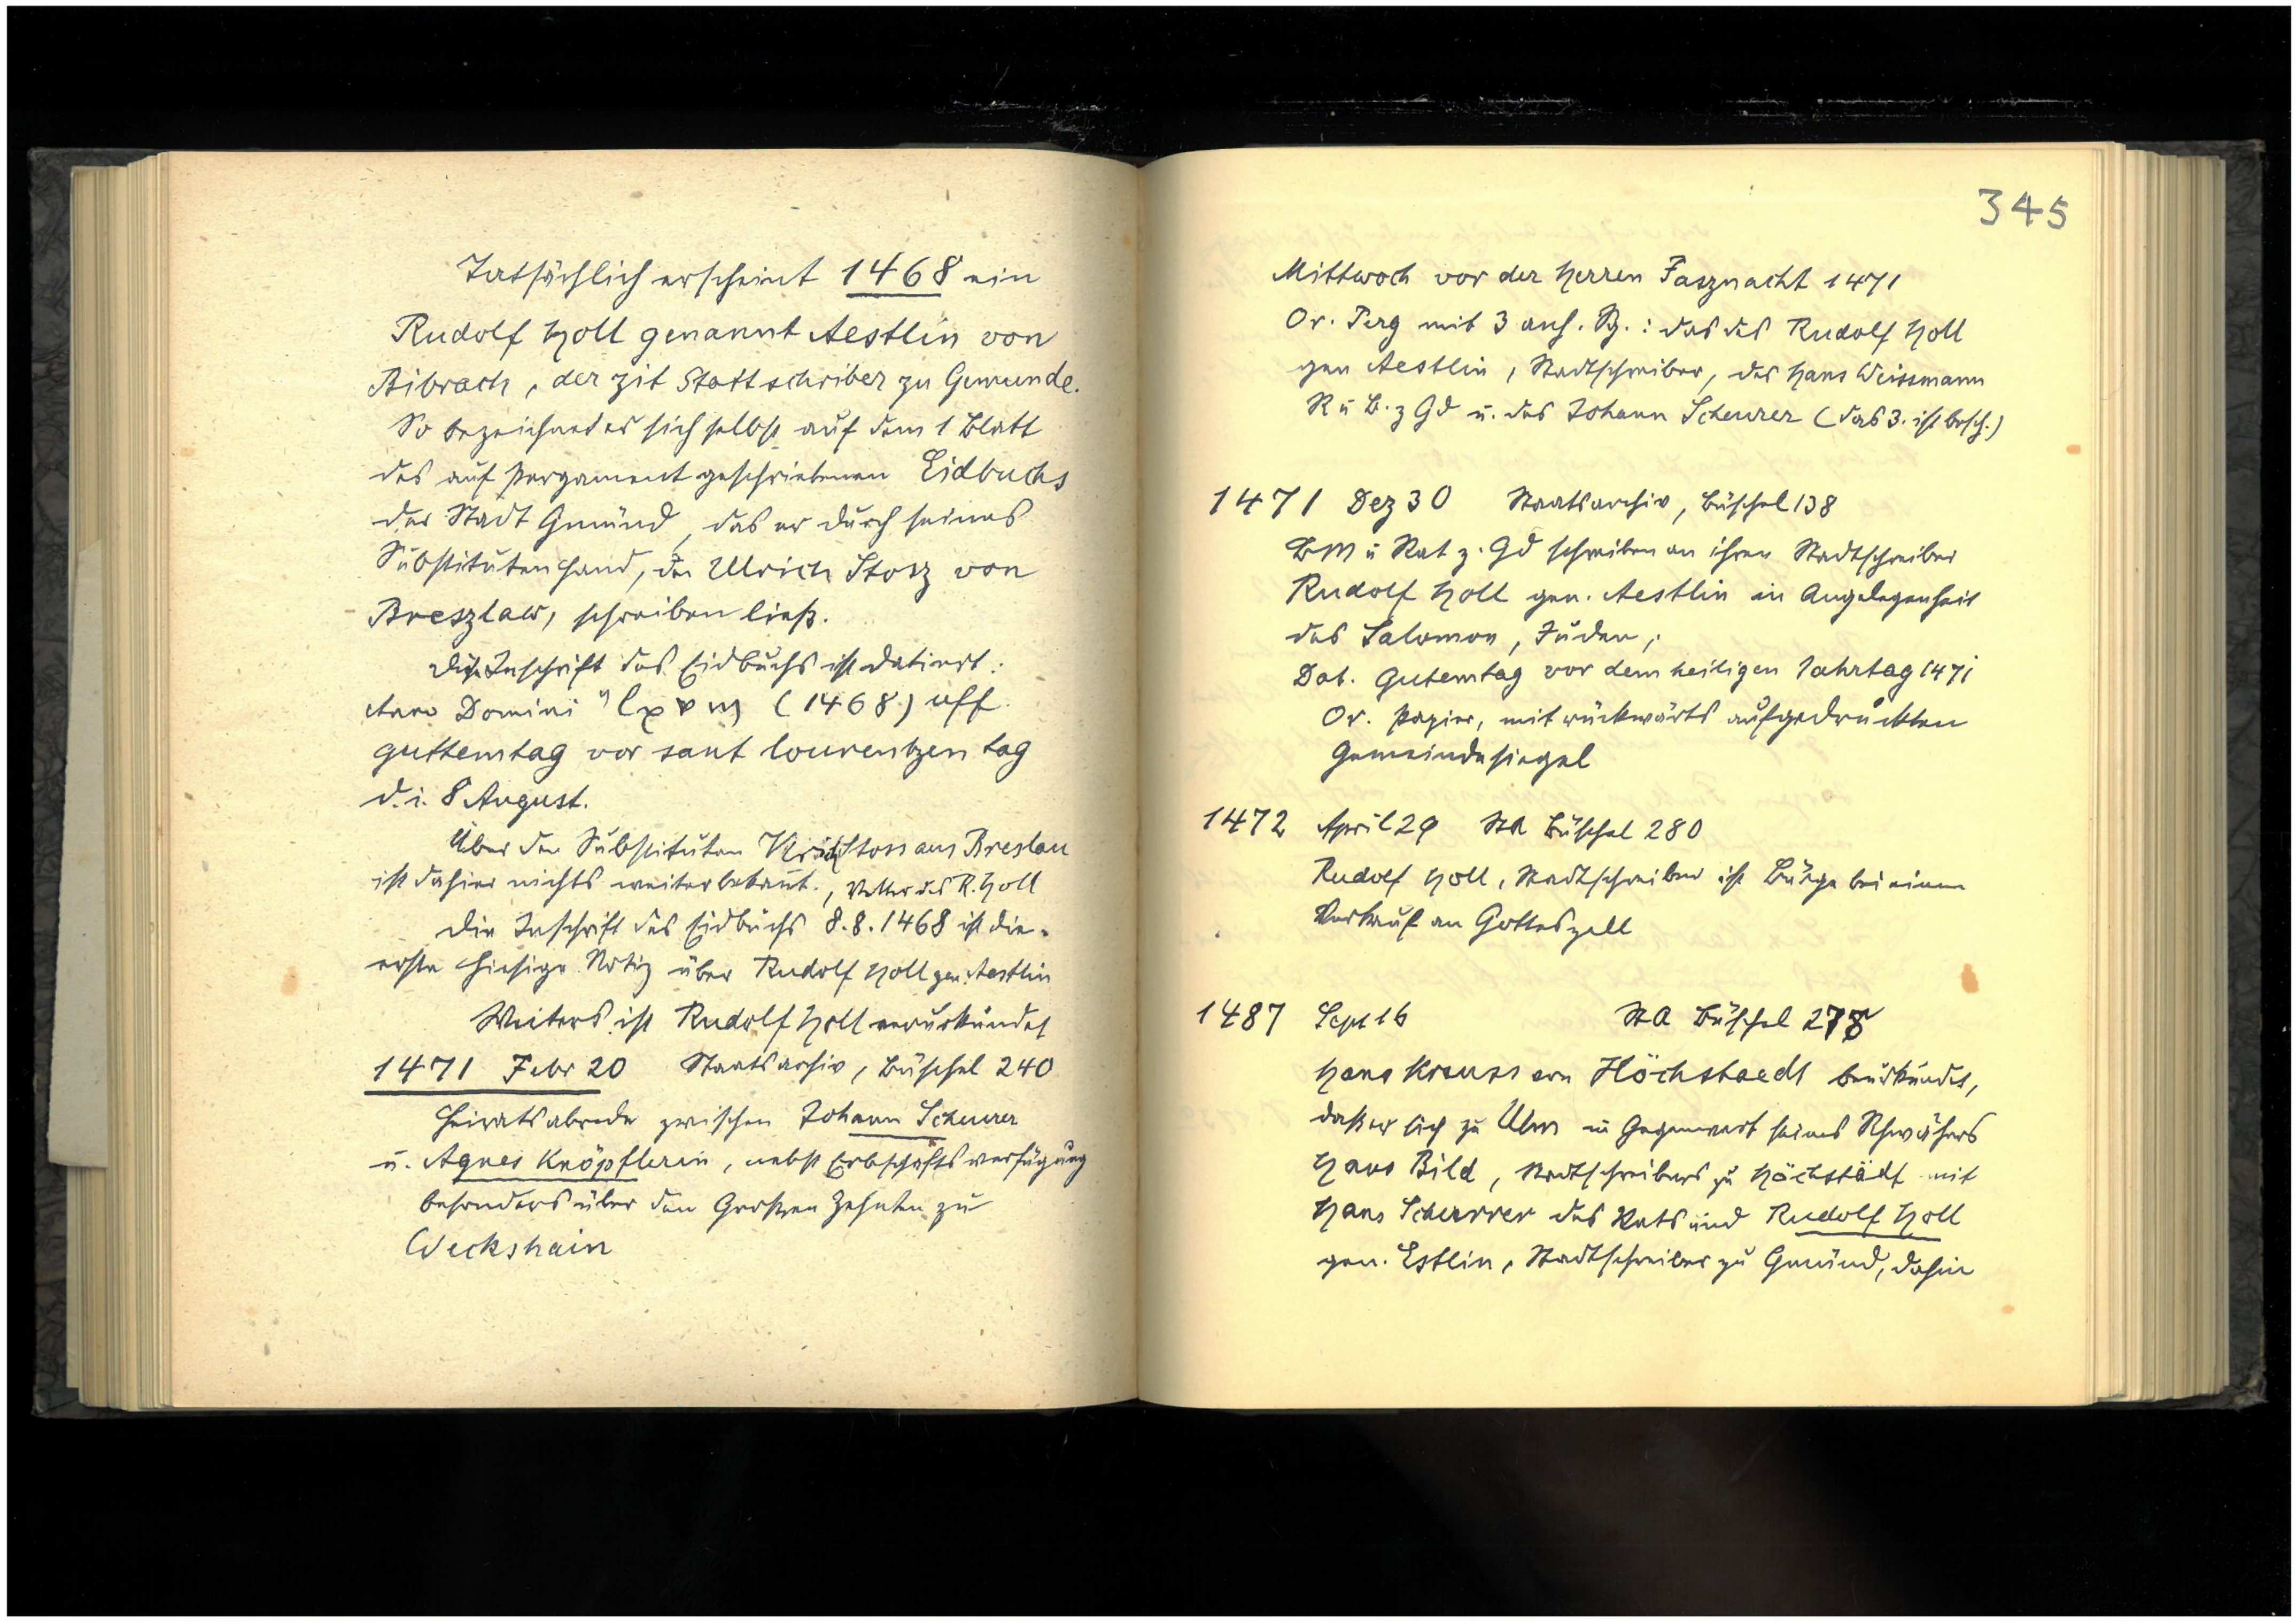 Tatsächlich erscheint 1468 ein
Rudolf Holl genannt Aestlin von
Bibrach, der zit Stattschriber zu Gemunde.
So bezeichnet er sich selbst auf dem 1 Blatt
des auf Pergament geschriebenen Eidbuchs
der Stadt Gmünd, das er durch seines
Substituten Hand, den Ulrich Stosz von
Breszlaw, schreiben ließ.
Die Inschrift des Eidbuchs ist datiert:
Anno Domini lxviii (1468) uff
guttemtag vor sant lourentzen tag
d. i. 8 August.
Über den Substituten Ulrich Stoss aus Breslau
ist dahier nichts weiter bekannt., Vetter des R. Holl
Die Inschrift des Eidbuchs 8.8.1468 ist die
erste hiesige Notiz über Rudolf Holl gen. Aestlin
Weiters ist Rudolf Holl verurkundet
1471 Febr 20 Staatsarchiv, Büschel 240
Heiratsabrede zwischen Johann Scheurer
u. Agnes Knöpflerin, nebst Erbschaftsverfügung
besonders über den Grossen Zehnten zu
Weckshain
345
Mittwoch vor der Herren Fasznacht 1471
Or. Perg mit 3 anh. Sg.: das des Rudolf Holl
gen Aestlin, Stadtschreiber, des Hans Weissmann
R u B. z Gd u. des Johann Scheurer (das 3. ist besch.)
1471 Dez 30 Staatsarchiv, Büschel 138
BM u Rat z. Gd schreiben an ihren Stadtschreiber
Rudolf Holl gen. Aestlin in Angelegenheit
des Salomon, Juden;
Dat. Gutemtag vor dem heiligen Jahrtag 1471
Or. Papier, mit rückwärts aufgedrückten
Gemeindesiegel
1472 April 29 StA Büschel 280
Rudolf Holl, Stadtschreiber ist Bürge bei einem
Verkauf an Gotteszell
1487 Sept 16 StA Büschel 278
Hans Krauss von Höchstaedt beurkundet,
daß er sich zu Ulm in Gegenwart seines Schwähers
Hans Bild, Stadtschreibers zu Höchstädt mit
Hans Scheurrer des Rats und Rudolf Holl
gen. Estlin, Stadtschreiber zu Gmünd, dahin